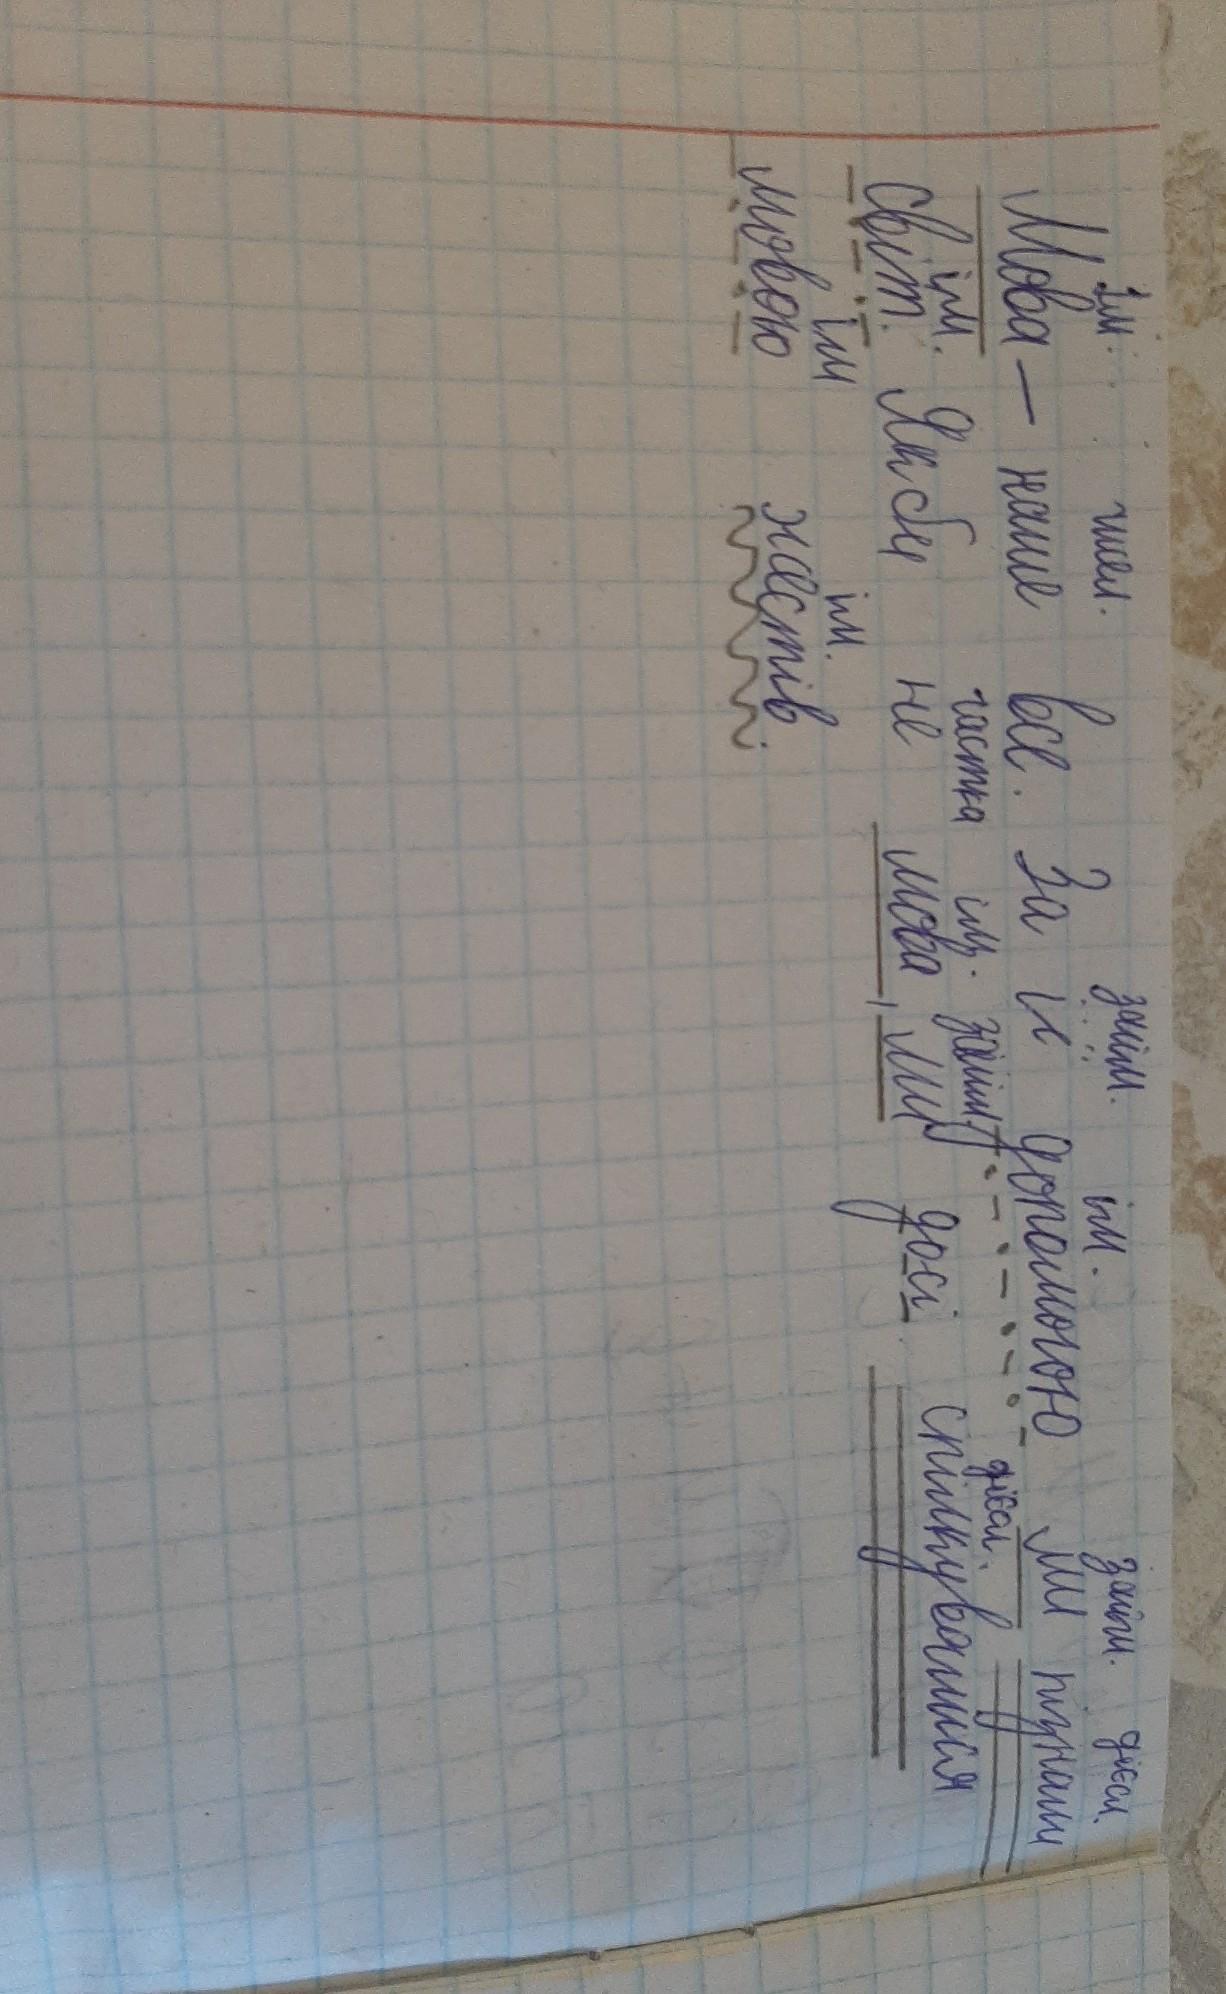 Ім. числ. займ. ім. займ. дієсл.
Мова — наше все. За її допомогою ми пізнали
ім. частка ім. займ. дієсл.
світ. Якби не мова, ми досі спілкувалися
ім ім.
мовою жестів.